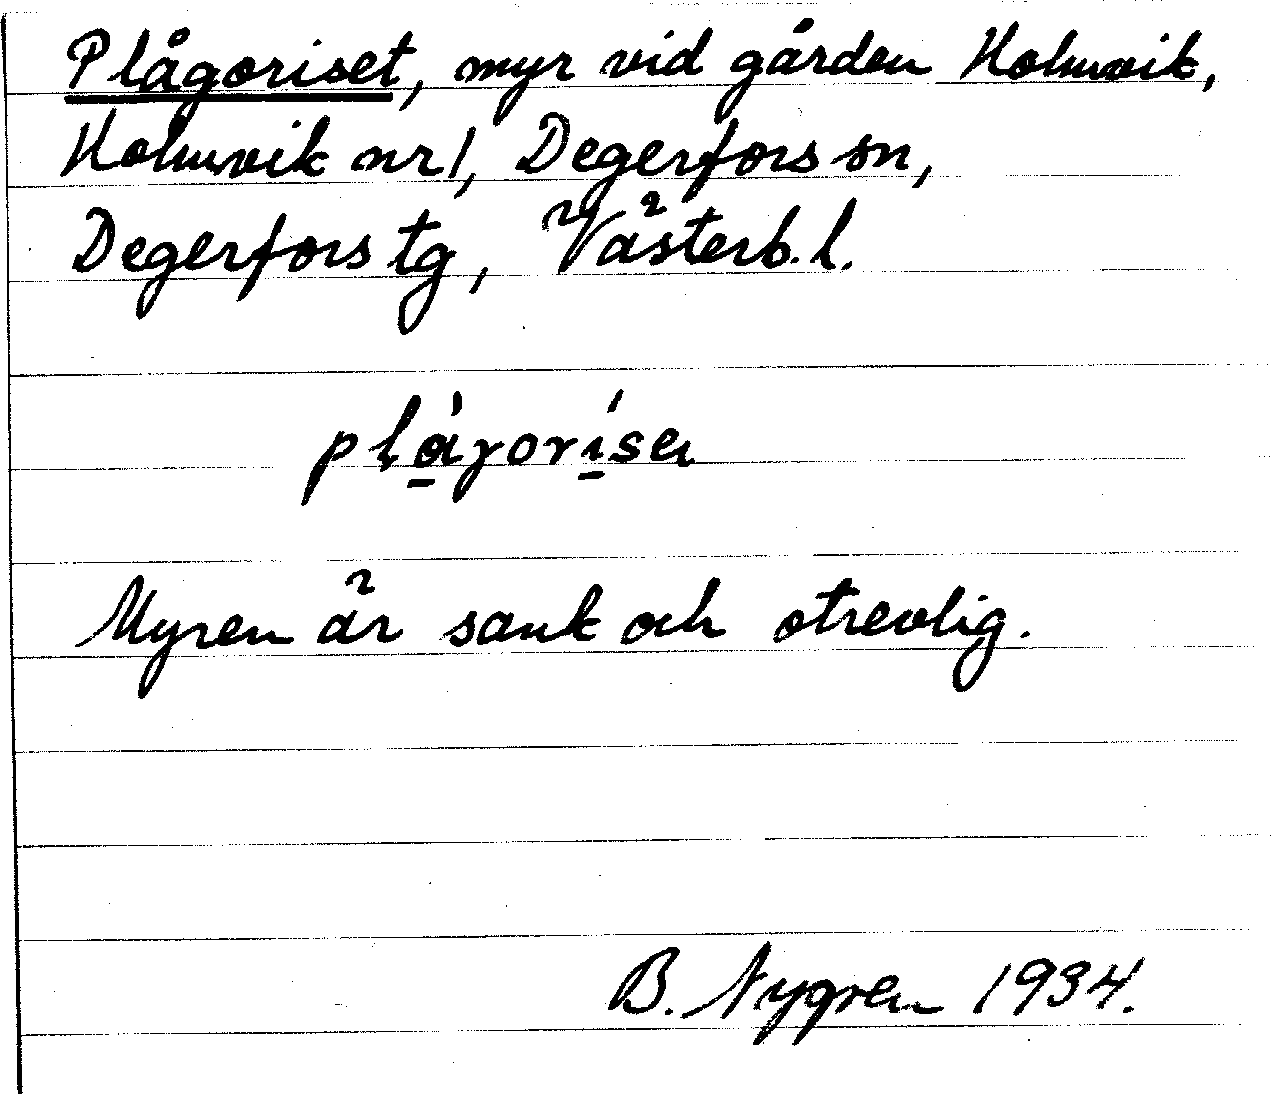 Plågoriset, myr vid gården Holmvik,
Holmvik nr 1, Degerfors sn,
Degerfors tg, Västerb. l.
Myren är sank och otrevlig.
B. Nygren 1934.